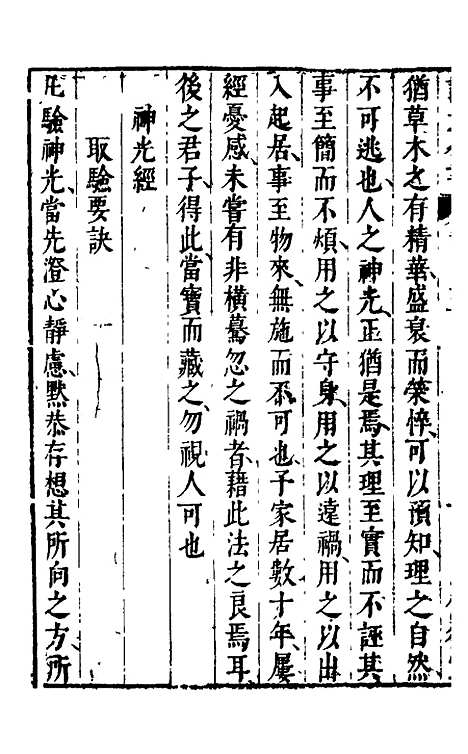 猶草木之有精華盛衰而榮悴可以預知理之自然
不可逃也人之神光正猶是焉其理至實而不誣其
事至簡而不煩用之以守身用之以遠禍用之以出
入起居事至物來無施而不可也予家居數十年屢
經憂感未嘗有非橫驀忽之禍者藉此法之良焉耳
後之君子得此當寶而藏之勿視人可也
神光經
取驗要訣
凡驗神光當先澄心靜慮默恭存想其所向之方所